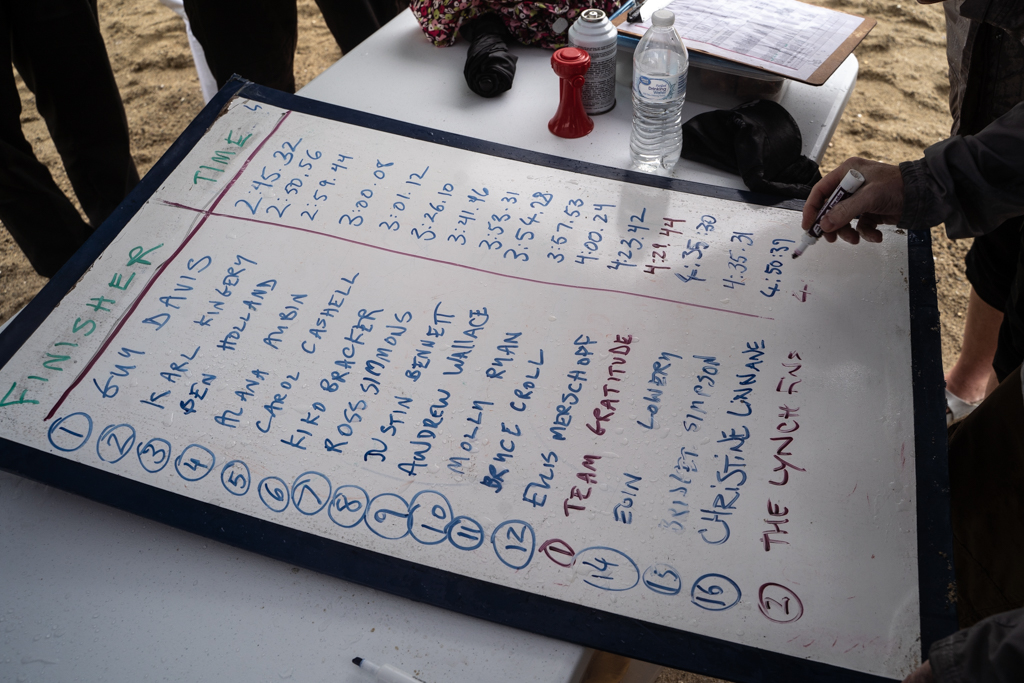 FINISHER TIME
1 GUY DAVIS 2:45.32
2 KARL KINGERY 2:50.56
3 BEN HOLLAND 2:59.44
4 ALANA AUBIN 3:00.08
5 CAROL CASHELL 3:01.12
6 KIKO BRACKER 3:26.10
7 ROSS SIMMONS 3:41.46
8 DUSTIN BENNETT 3:53.31
9 ANDREW WALLACE 3:54.28
10 MOLLY RYAN 3:57.53
11 BRUCE CROLL 4:00.24
12 ELLIS MERSCHOFF 4:23.42
1 TEAM GRATITUDE 4:29.44
14 EOIN LOWERY 4:35:30
15 SIMPSON 4:35:31
16 CHRISTINE LANNANE 4:50:39
2 THE LYNCH FINS 4.